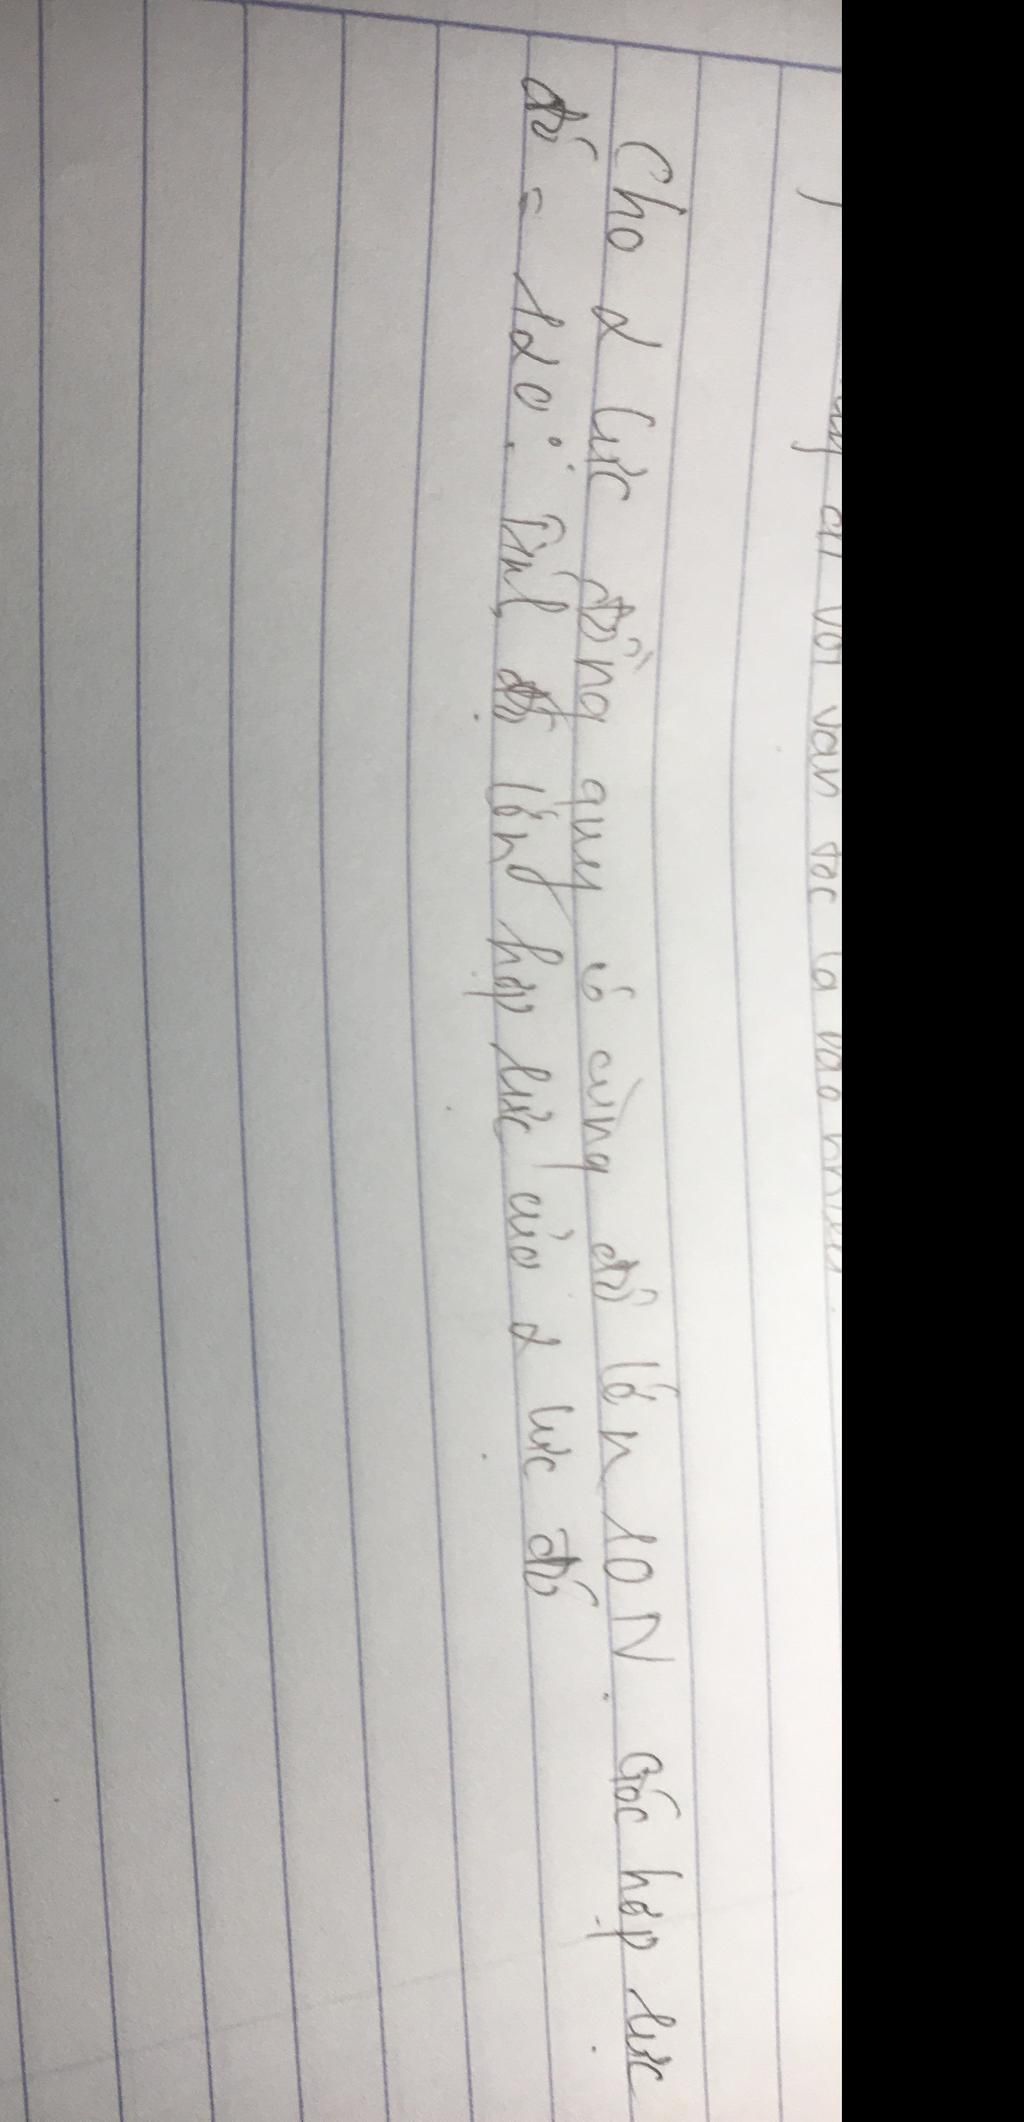 với vận tốc là vào nhiêu.
Cho 2 lực đồng quy có cùng độ lớn 10N. Góc hợp lực
đó = 120°. Tính độ lớn hợp lực của 2 lực đó